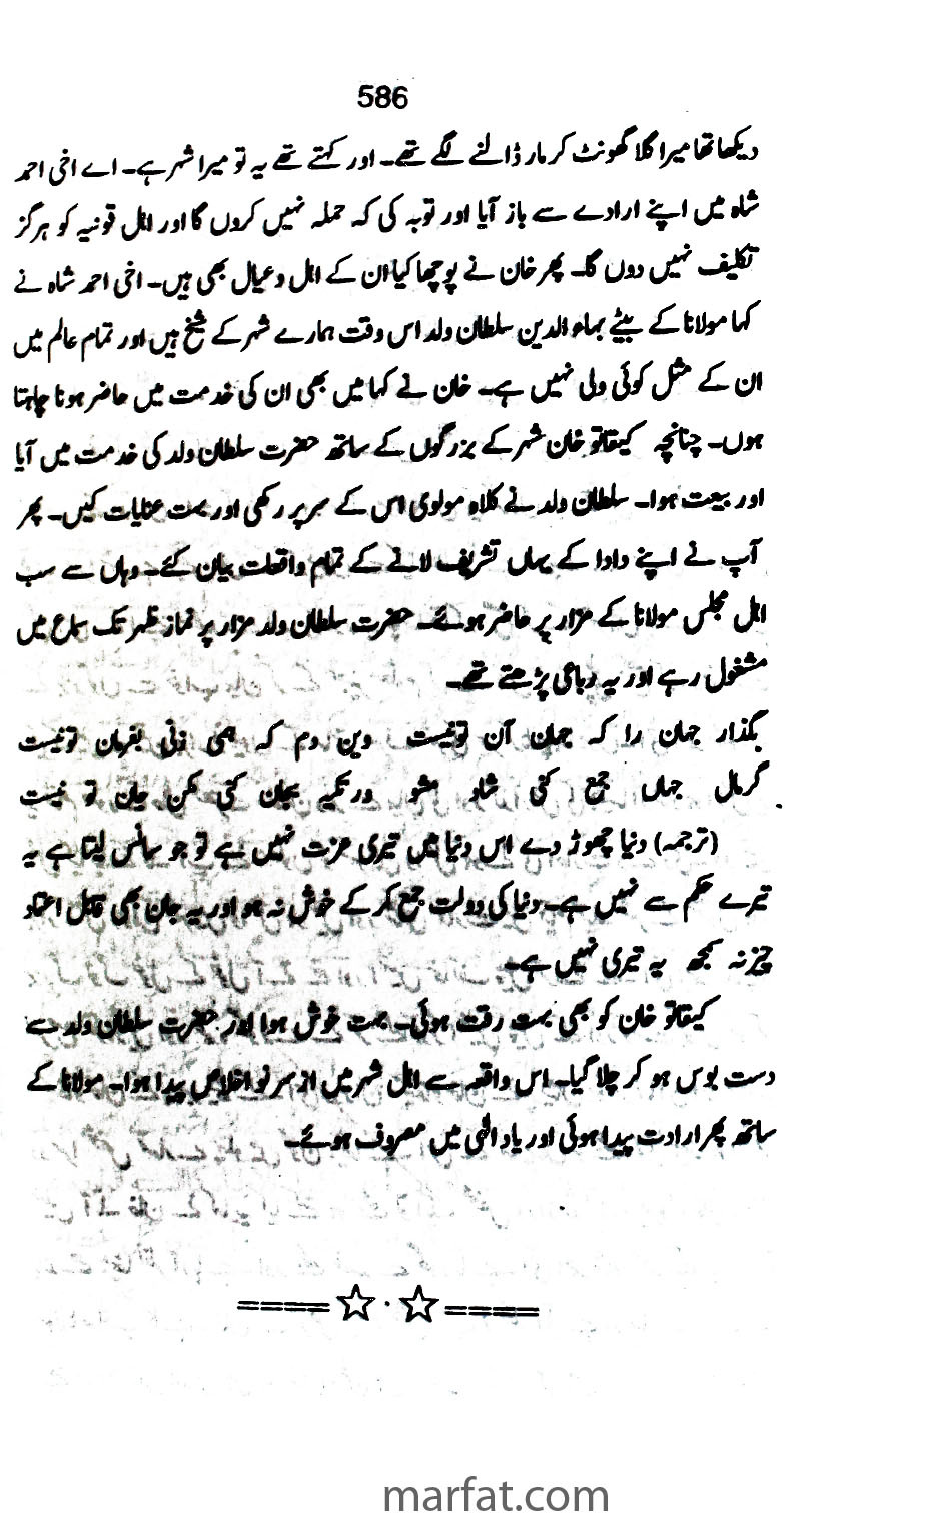 586
دیکھا تھا میرا گلا گھونٹ کر مار ڈالنے لگے تھے۔ اور کہتے تھے یہ تو میرا شہر ہے۔ اے اخی احمد
شاہ میں اپنے ارادے سے باز آیا اور توبہ کی کہ حملہ نہیں کروں گا اور اہل قونیہ کو ہرگز
تکلیف نہیں دوں گا۔ پھر خان نے پوچھا کیا ان کے اہل و عیال بھی ہیں۔ اخی احمد شاہ نے
کہا مولانا کے بیٹے بہاء الدین سلطان ولد اس وقت ہمارے شہر کے شیخ ہیں اور تمام عالم میں
ان کے مثل کوئی ولی نہیں ہے۔ خان نے کہا میں بھی ان کی خدمت میں حاضر ہونا چاہتا
ہوں۔ چنانچہ کیقاتو خان شہر کے بزرگوں کے ساتھ حضرت سلطان ولد کی خدمت میں آیا
اور بیعت ہوا۔ سلطان ولد نے کلاہ مولوی اس کے سر پر رکھی اور بہت عنایات کیں۔ پھر
آپ نے اپنے دادا کے یہاں تشریف لانے کے تمام واقعات بیان کئے۔ وہاں سے سب
اہل مجلس مولانا کے مزار پر حاضر ہوئے۔ حضرت سلطان ولد مزار پر نماز ظہر تک سماع میں
مشغول رہے اور یہ رباعی پڑھتے تھے۔
بگذار جہان را کہ جہان آن تو نیست وین دم کہ ہمی زنی بفرمان تو نیست
گر مال جہاں جمع کنی شاد مشو ور تکیہ بجان کنی مکن جان تو نیست
(ترجمہ) دنیا چھوڑ دے اس دنیا میں تیری عزت نہیں ہے تو جو سانس لیتا ہے یہ
تیرے حکم سے نہیں ہے۔ دنیا کی دولت جمع کر کے خوش نہ ہو اور یہ جان بھی قابل اعتماد
چیز نہ سمجھ یہ تیری نہیں ہے۔
کیقاتو خان کو بھی بہت رقت ہوئی۔ بہت خوش ہوا اور حضرت سلطان ولد سے
دست بوس ہو کر چلا گیا۔ اس واقعہ سے اہل شہر میں از سر نو اخلاص پیدا ہوا۔ مولانا کے
ساتھ پھر ارادت پیدا ہوئی اور یاد الٰہی میں مصروف ہوئے۔
====☆·☆====
marfat.com